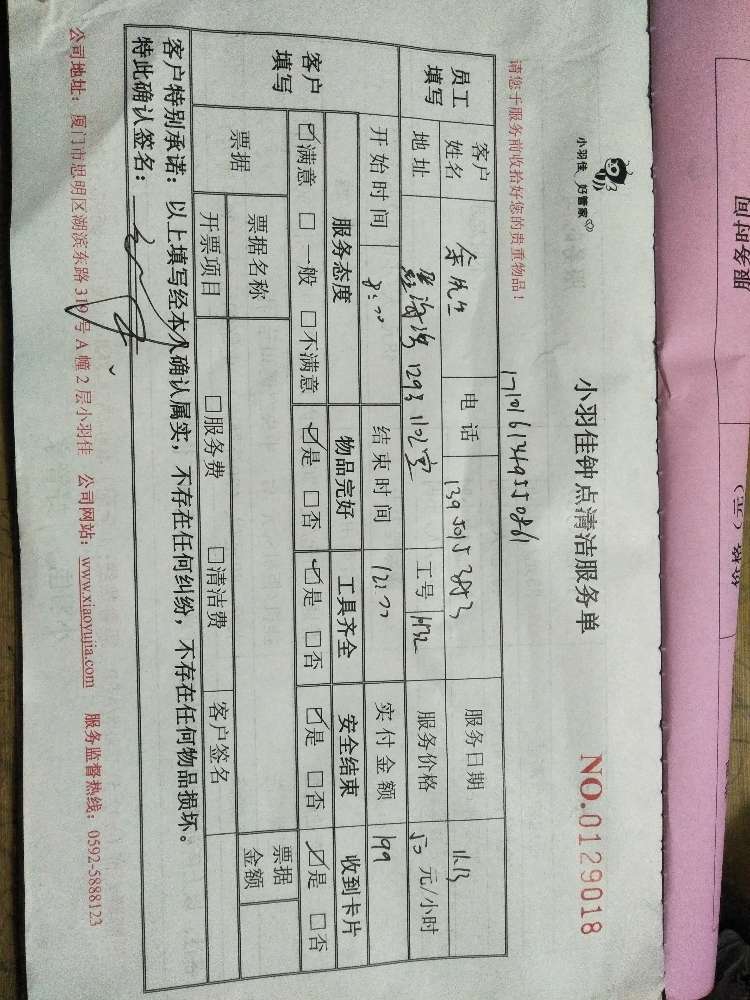 小羽佳 好管家
小羽佳钟点清洁服务单
NO.0129018
请您于服务前收拾好您的贵重物品！
1710161349550861
员工填写
客户姓名 余先生 电话 13950153853 服务日期 11.13
地址 1293 1102室 工号 服务价格 50 元/小时
开始时间 8:00 结束时间 12:00 实付金额 199
客户填写
服务态度 物品完好 工具齐全 安全结束 收到卡片
☑满意 □一般 □不满意 ☑是 □否 ☑是 □否 ☑是 □否 ☑是 □否
票据 票据名称 票据金额
开票项目 □服务费 □清洁费 客户签名
客户特别承诺：以上填写经本人确认属实，不存在任何纠纷，不存在任何物品损坏。
特此确认签名：
公司地址：厦门市思明区湖滨东路319号A幢2层小羽佳 公司网站：www.xiaoyujia.com 服务监督热线：0592-5888123
服务时间